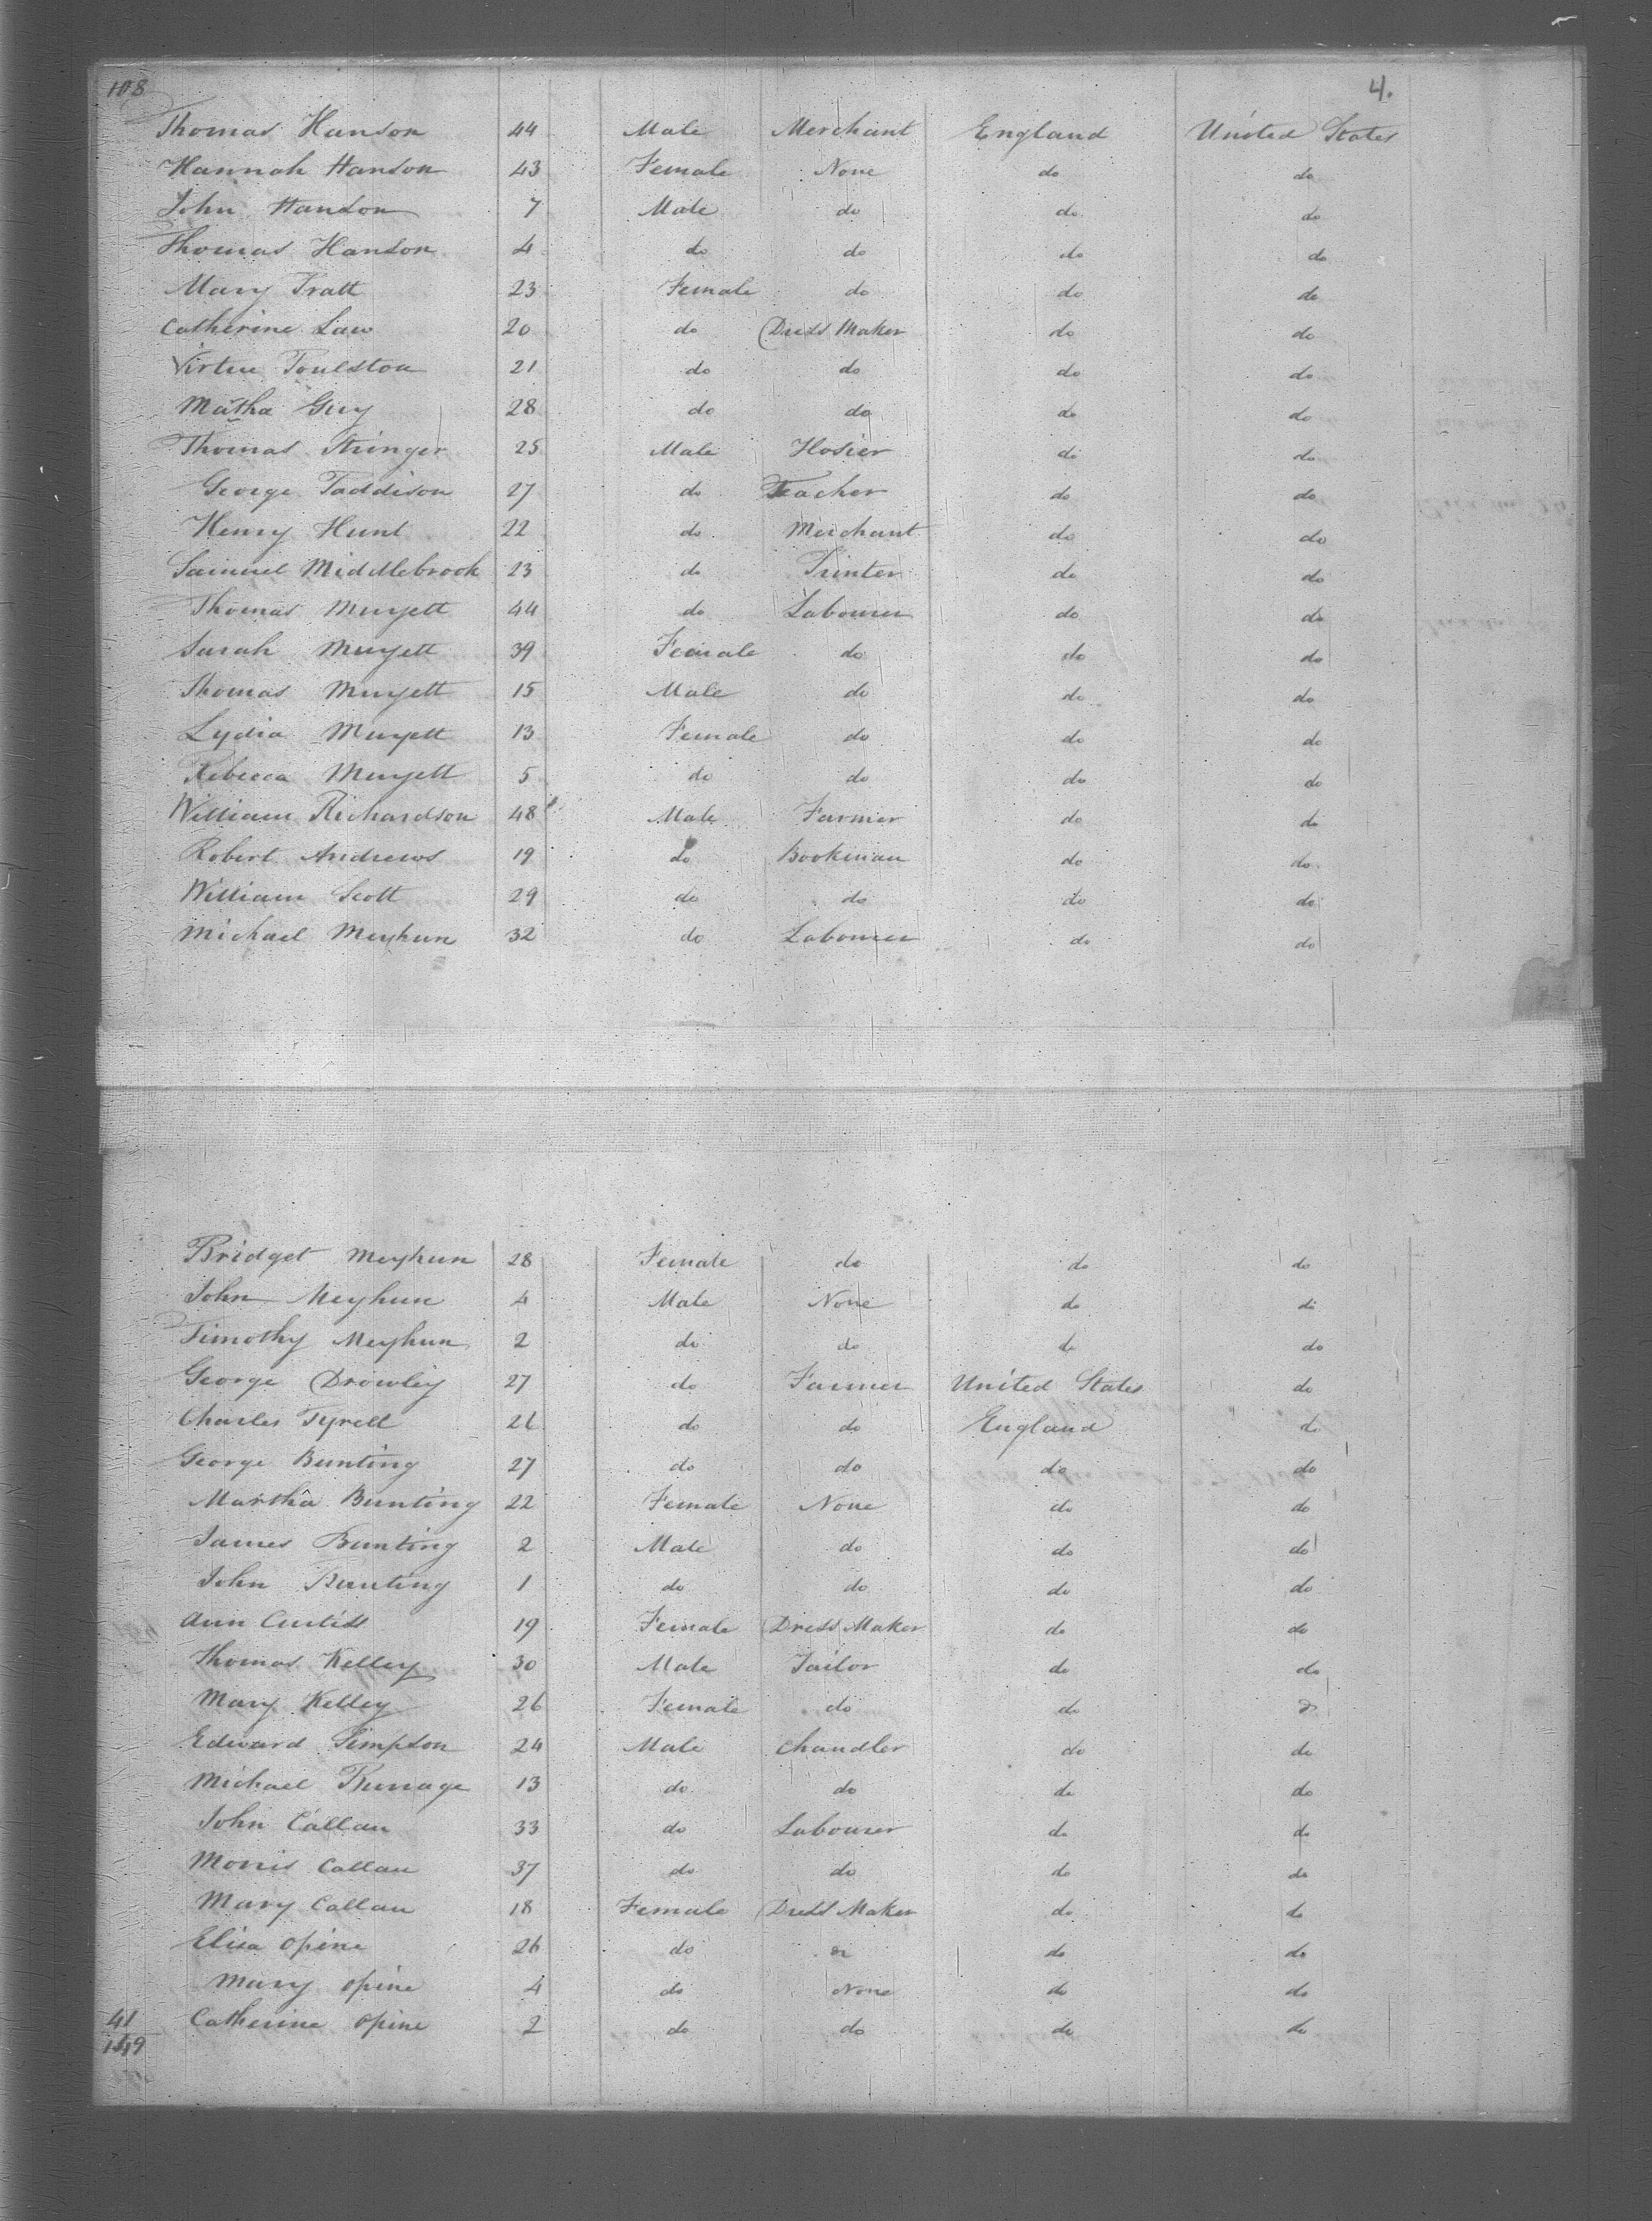 108 4.
Thomas Hanson 44 Male Merchant England United States
Hannah Hanson 43 Female None do do
John Hanson 7 Male do do do
Thomas Hanson 4 do do do do
Mary Pratt 23 Female do do do
Catherine Law 20 do Dress Maker do do
Virtue Toulston 21 do do do do
Matha Guy 28 do do do do
Thomas Stringer 25 Male Hosier do do
George Taddison 27 do Teacher do do
Henry Hunt 22 do Merchant do do
Samuel Middlebrook 23 do Printer do do
Thomas 44 do Labourer do do
Sarah 39 Female do do do
Thomas 15 Male do do do
Lydia 13 Female do do do
Rebecca 5 do do do do
William Richardson 48 Male Farmer do do
Robert Andrews 19 do Bookman do do
William Scott 29 do do do do
Michael Meyhun 32 do Labourer do do
Bridget Meyhun 28 Female do do do
John Meyhun 4 Male None do do
Timothy Meyhun 2 do do do do
George Drowley 27 do Farmer United States do
Charles Tyrell 26 do do England do
George Bunting 27 do do do do
Martha Bunting 22 Female None do do
James Bunting 2 Male do do do
John Bunting 1 do do do do
Ann Curtiss 19 Female Dress Maker do do
Thomas Kelley 30 Male Tailor do do
Mary Kelley 26 Female do do do
Edward Simpson 24 Male Chandler do do
Michael 13 do do do do
John Callan 33 do Labourer do do
Morris Callan 37 do do do do
Mary Callan 18 Female Dress Maker do do
Eliza Opine 26 do do do do
Mary Opine 4 do None do do
41 Catherine Opine 2 do do do do
149